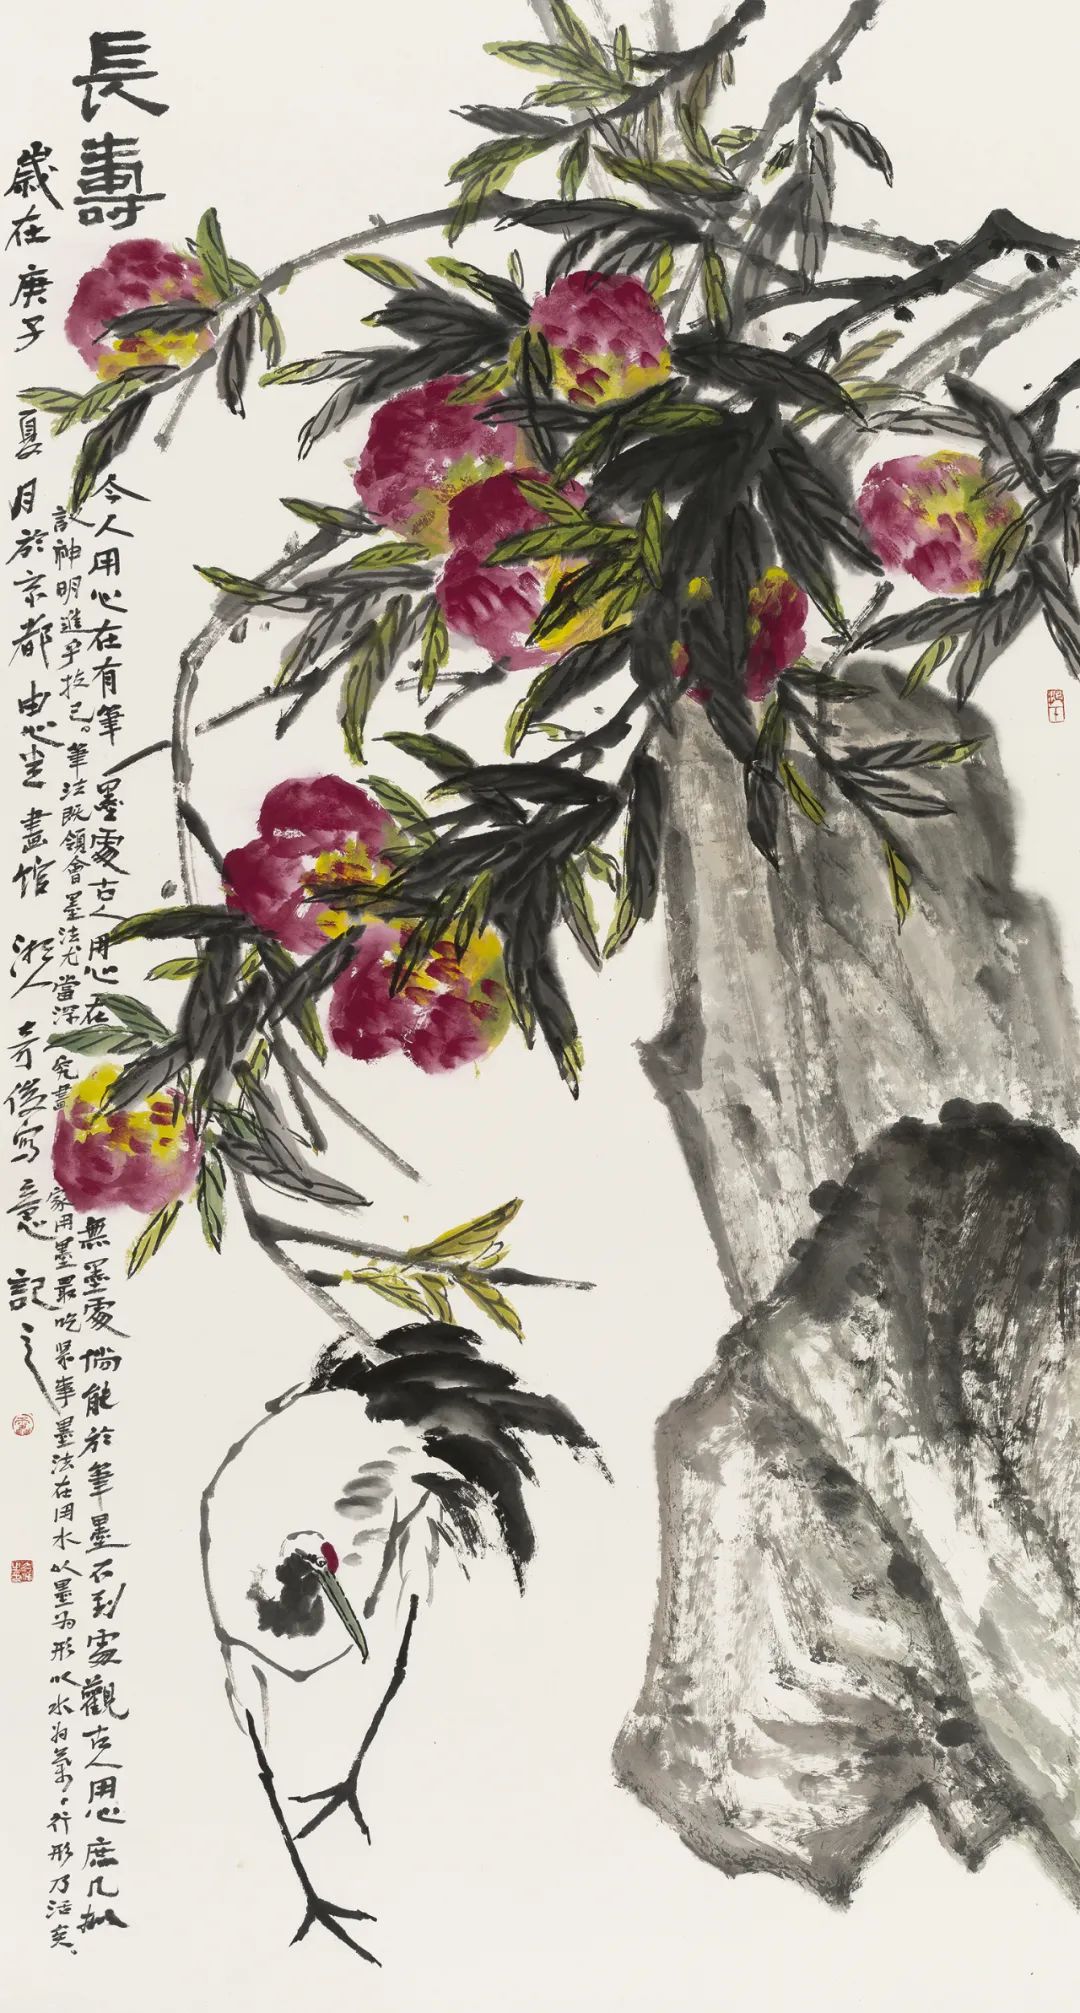 長壽
今人用心在有筆墨處古人用心在無墨處倘能於筆墨不到處觀古人用心庶几擬
議神明進乎技已。筆法既領會墨法尤當深究畫家用墨最吃緊事墨法在用水以墨為形以水為氣々行形乃活矣、
歲在庚子夏月於京都由心堂畫馆湘人奇俊寫意記之